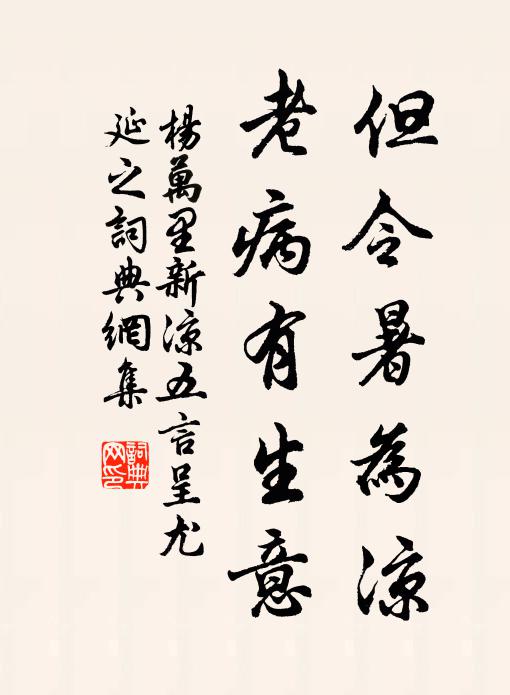 但令暑為涼
老病有生意
楊萬里新涼五言呈尤
延之詞典網集
詞典
网印